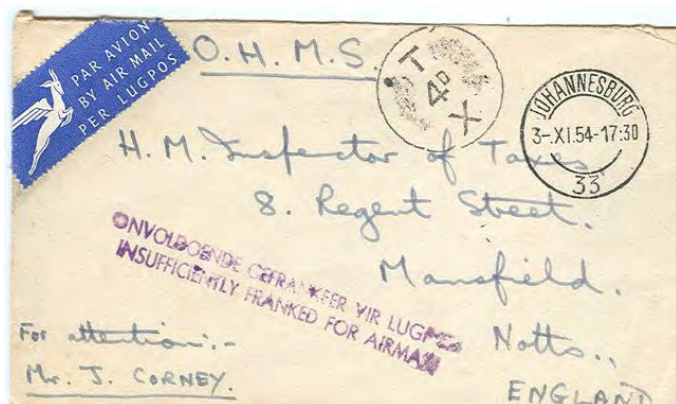 PAR AVION
BY AIR MAIL
PER LUGPOS
O.H.M.S.
T
4D
X
JOHANNESBURG
3-.XI.54-17:30
33
H.M. Inspector of Taxes
8. Regent Street.
Mansfield.
Notts..,
ENGLAND
ONVOLDOENDE GEFRANKEER VIR LUGPOS
INSUFFICIENTLY FRANKED FOR AIRMAIL
For attention:-
Mr. J. CORNEY.